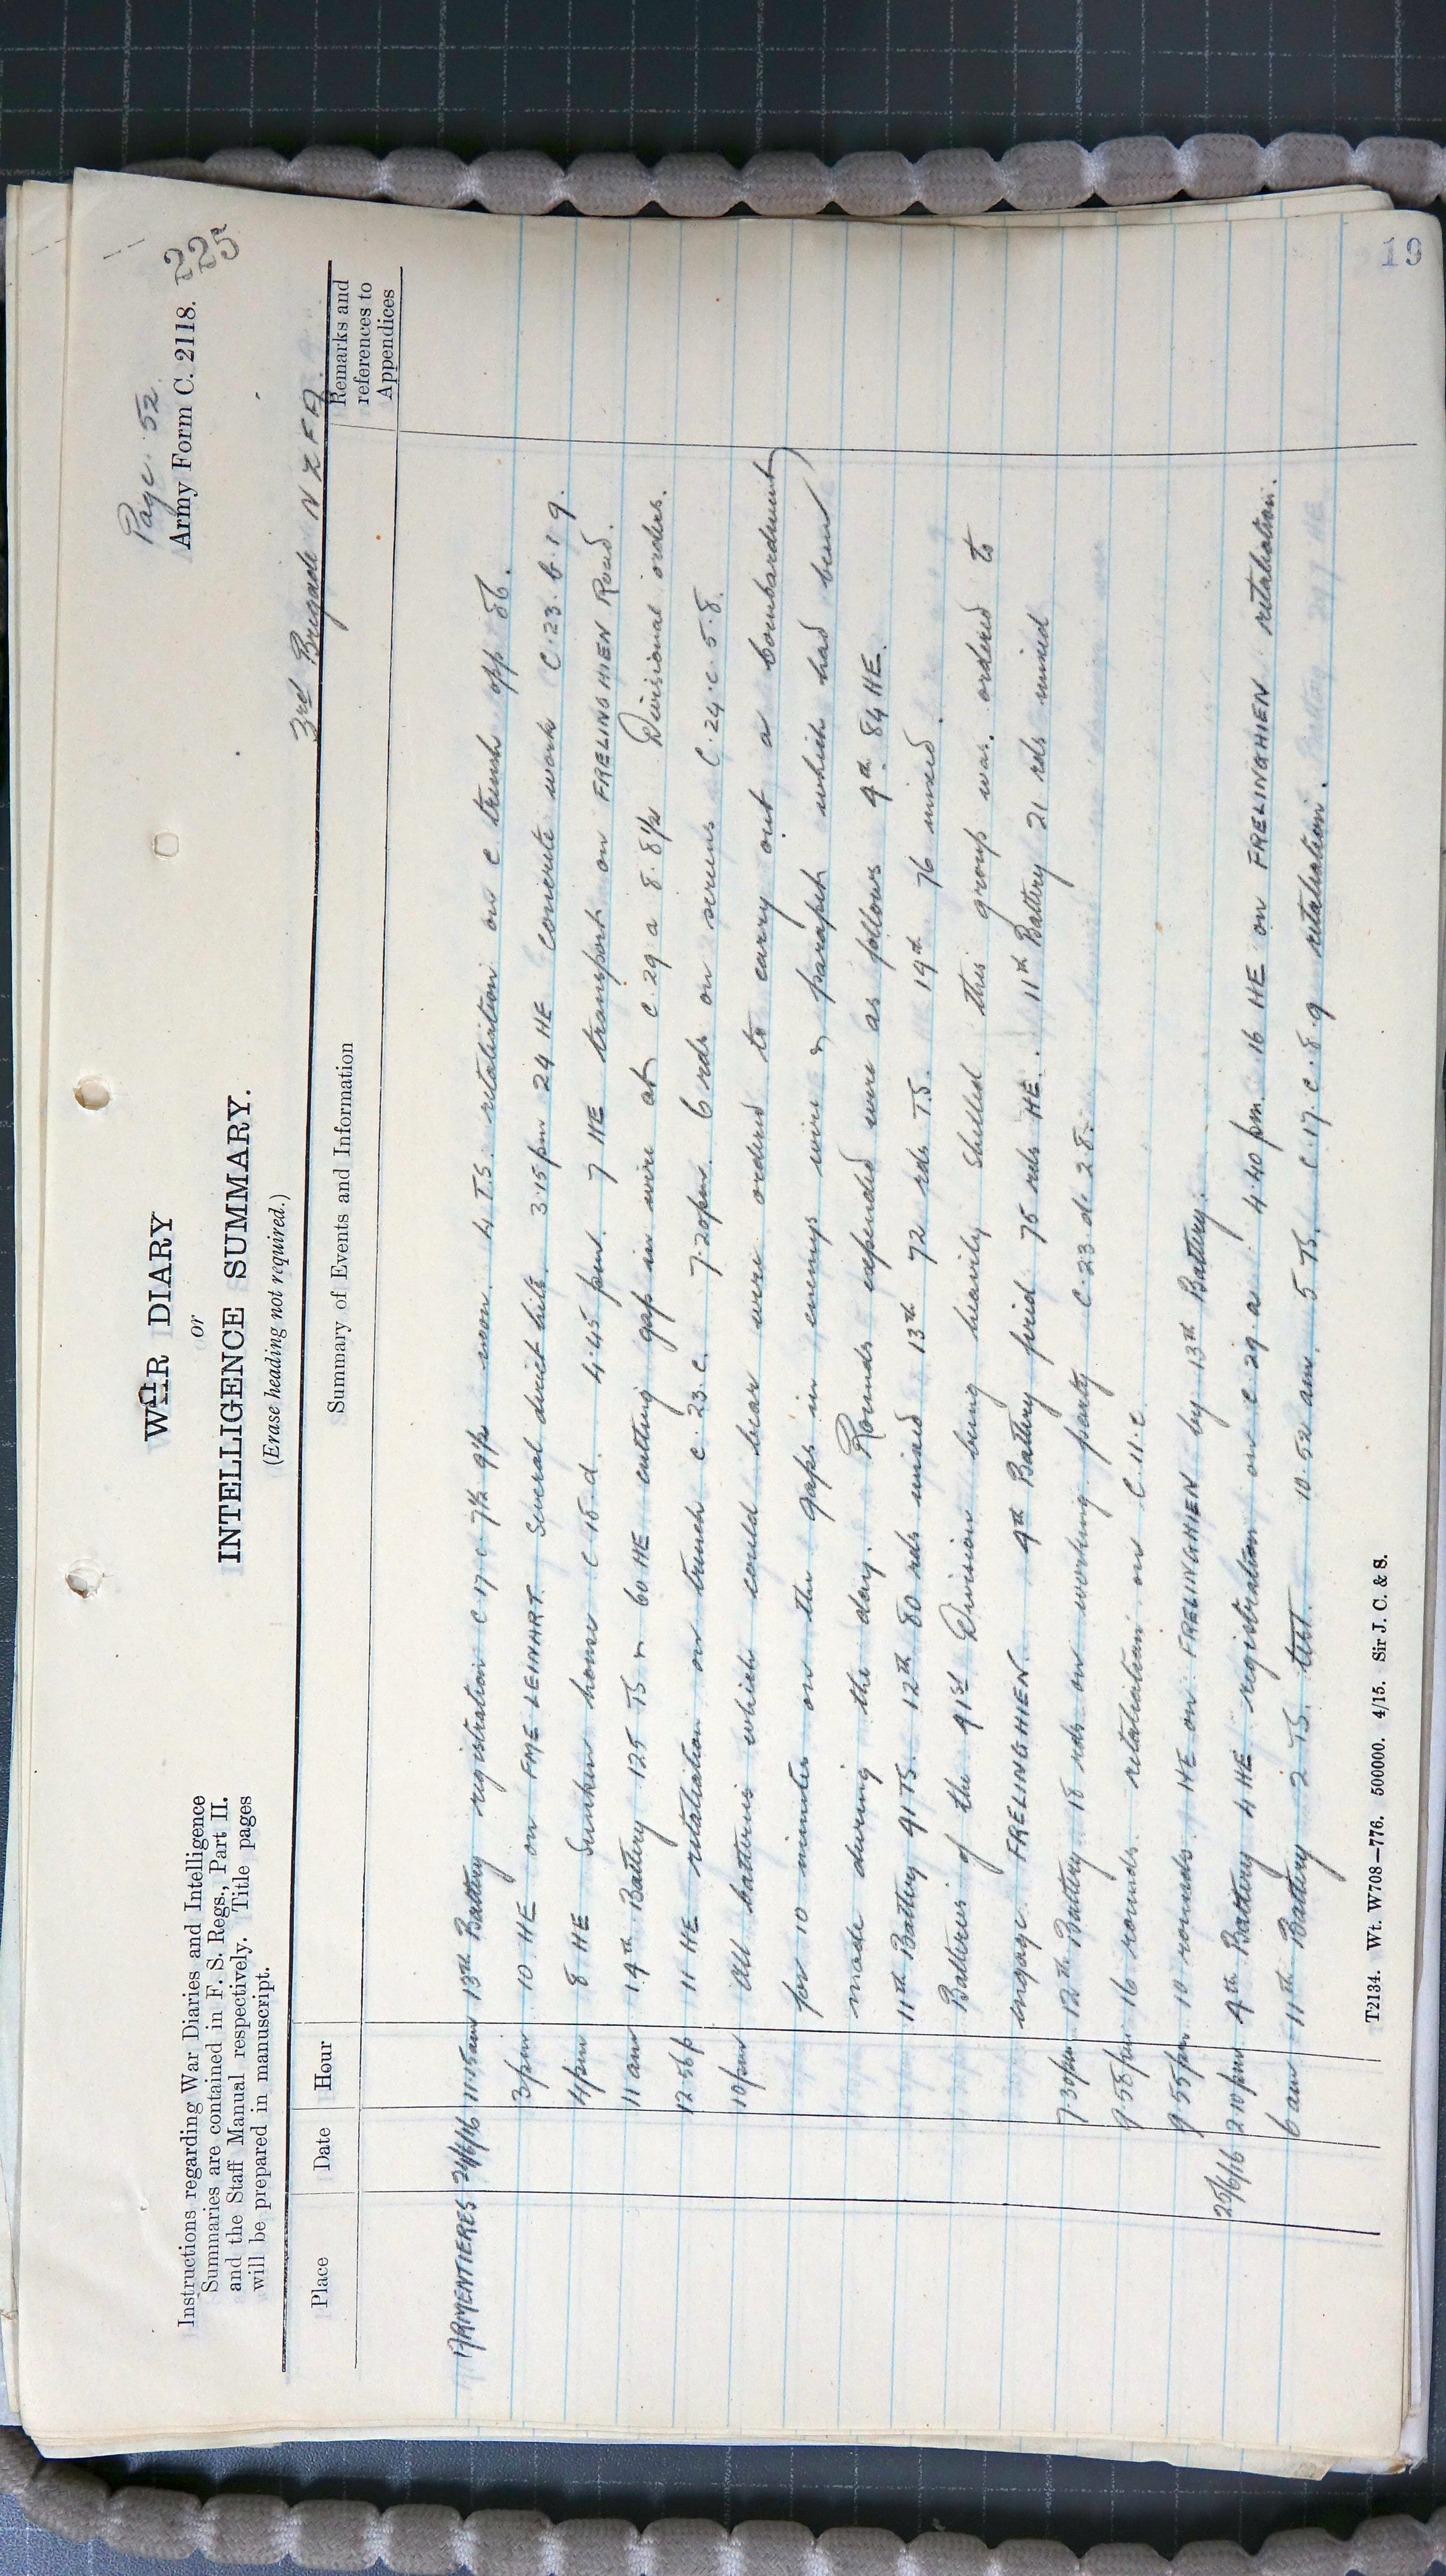 Page. 52.
Army Form C. 2118.
225
WAR DIARY
or
INTELLIGENCE SUMMARY.
(Erase heading not required.)
Instructions regarding War Diaries and Intelligence
Summaries are contained in F. S. Regs., Part II.
and the Staff Manual respectively. Title pages
will be prepared in manuscript.
3rd Brigade N Z F A.
Place Date Hour Summary of Events and Information Remarks and references to Appendices
ARMENTIERES 24/6/16 11.15am 13th Battery registration C 17 c 7½ 9½ noon. 4 T.S. retaliation on C trench opp 86.
3pm 10 HE on FME LEINHART. Several direct hits. 3.15pm 24 HE concrete work C.23.b.1 9.
4pm 8 HE Sunken house C 18 d. 4.45 pm. 7 HE transport on FRELINGHIEN Road.
11 am 14th Battery 125 TS & 60 HE cutting gap in wire at C.29 a 8. 8½ Divisional orders.
12.56p 11 HE retaliation on trench C. 23. c. 7.20pm. 6 rds on screens C.24.c.5.8.
10pm All batteries which could bear were ordered to carry out a bombardment
for 10 minutes on the gaps in enemys wire & parapet which had been
made during the day. Rounds expended were as follows 9th. 84 HE.
11th Battery 41 TS. 12th 80 rds mixed 13th 72 rds T.S. 14th 76 mixed.
Batteries of the 41st Division being heavily shelled this group was ordered to
engage FRELINGHIEN. 9th Battery fired 75 rds HE. 11th Battery 21 rds mixed
7.30pm 12th Battery 18 rds on working party C.23.d.2 8.
9.58pm 16 rounds. retaliation on C.11.c.
9.55pm 10 rounds. HE on FRELINGHIEN by 13th Battery.
25/6/16 2.10pm 9th Battery 4 HE registration on C.29.a. 4.40pm. 16 HE on FRELINGHIEN retaliation.
6am 11th Battery 2 TS. test. 10.52 am. 5 TS. C.17.c.8.9 retaliation.
T2134. Wt. W708—776. 500000. 4/15. Sir J. C. & S.
19